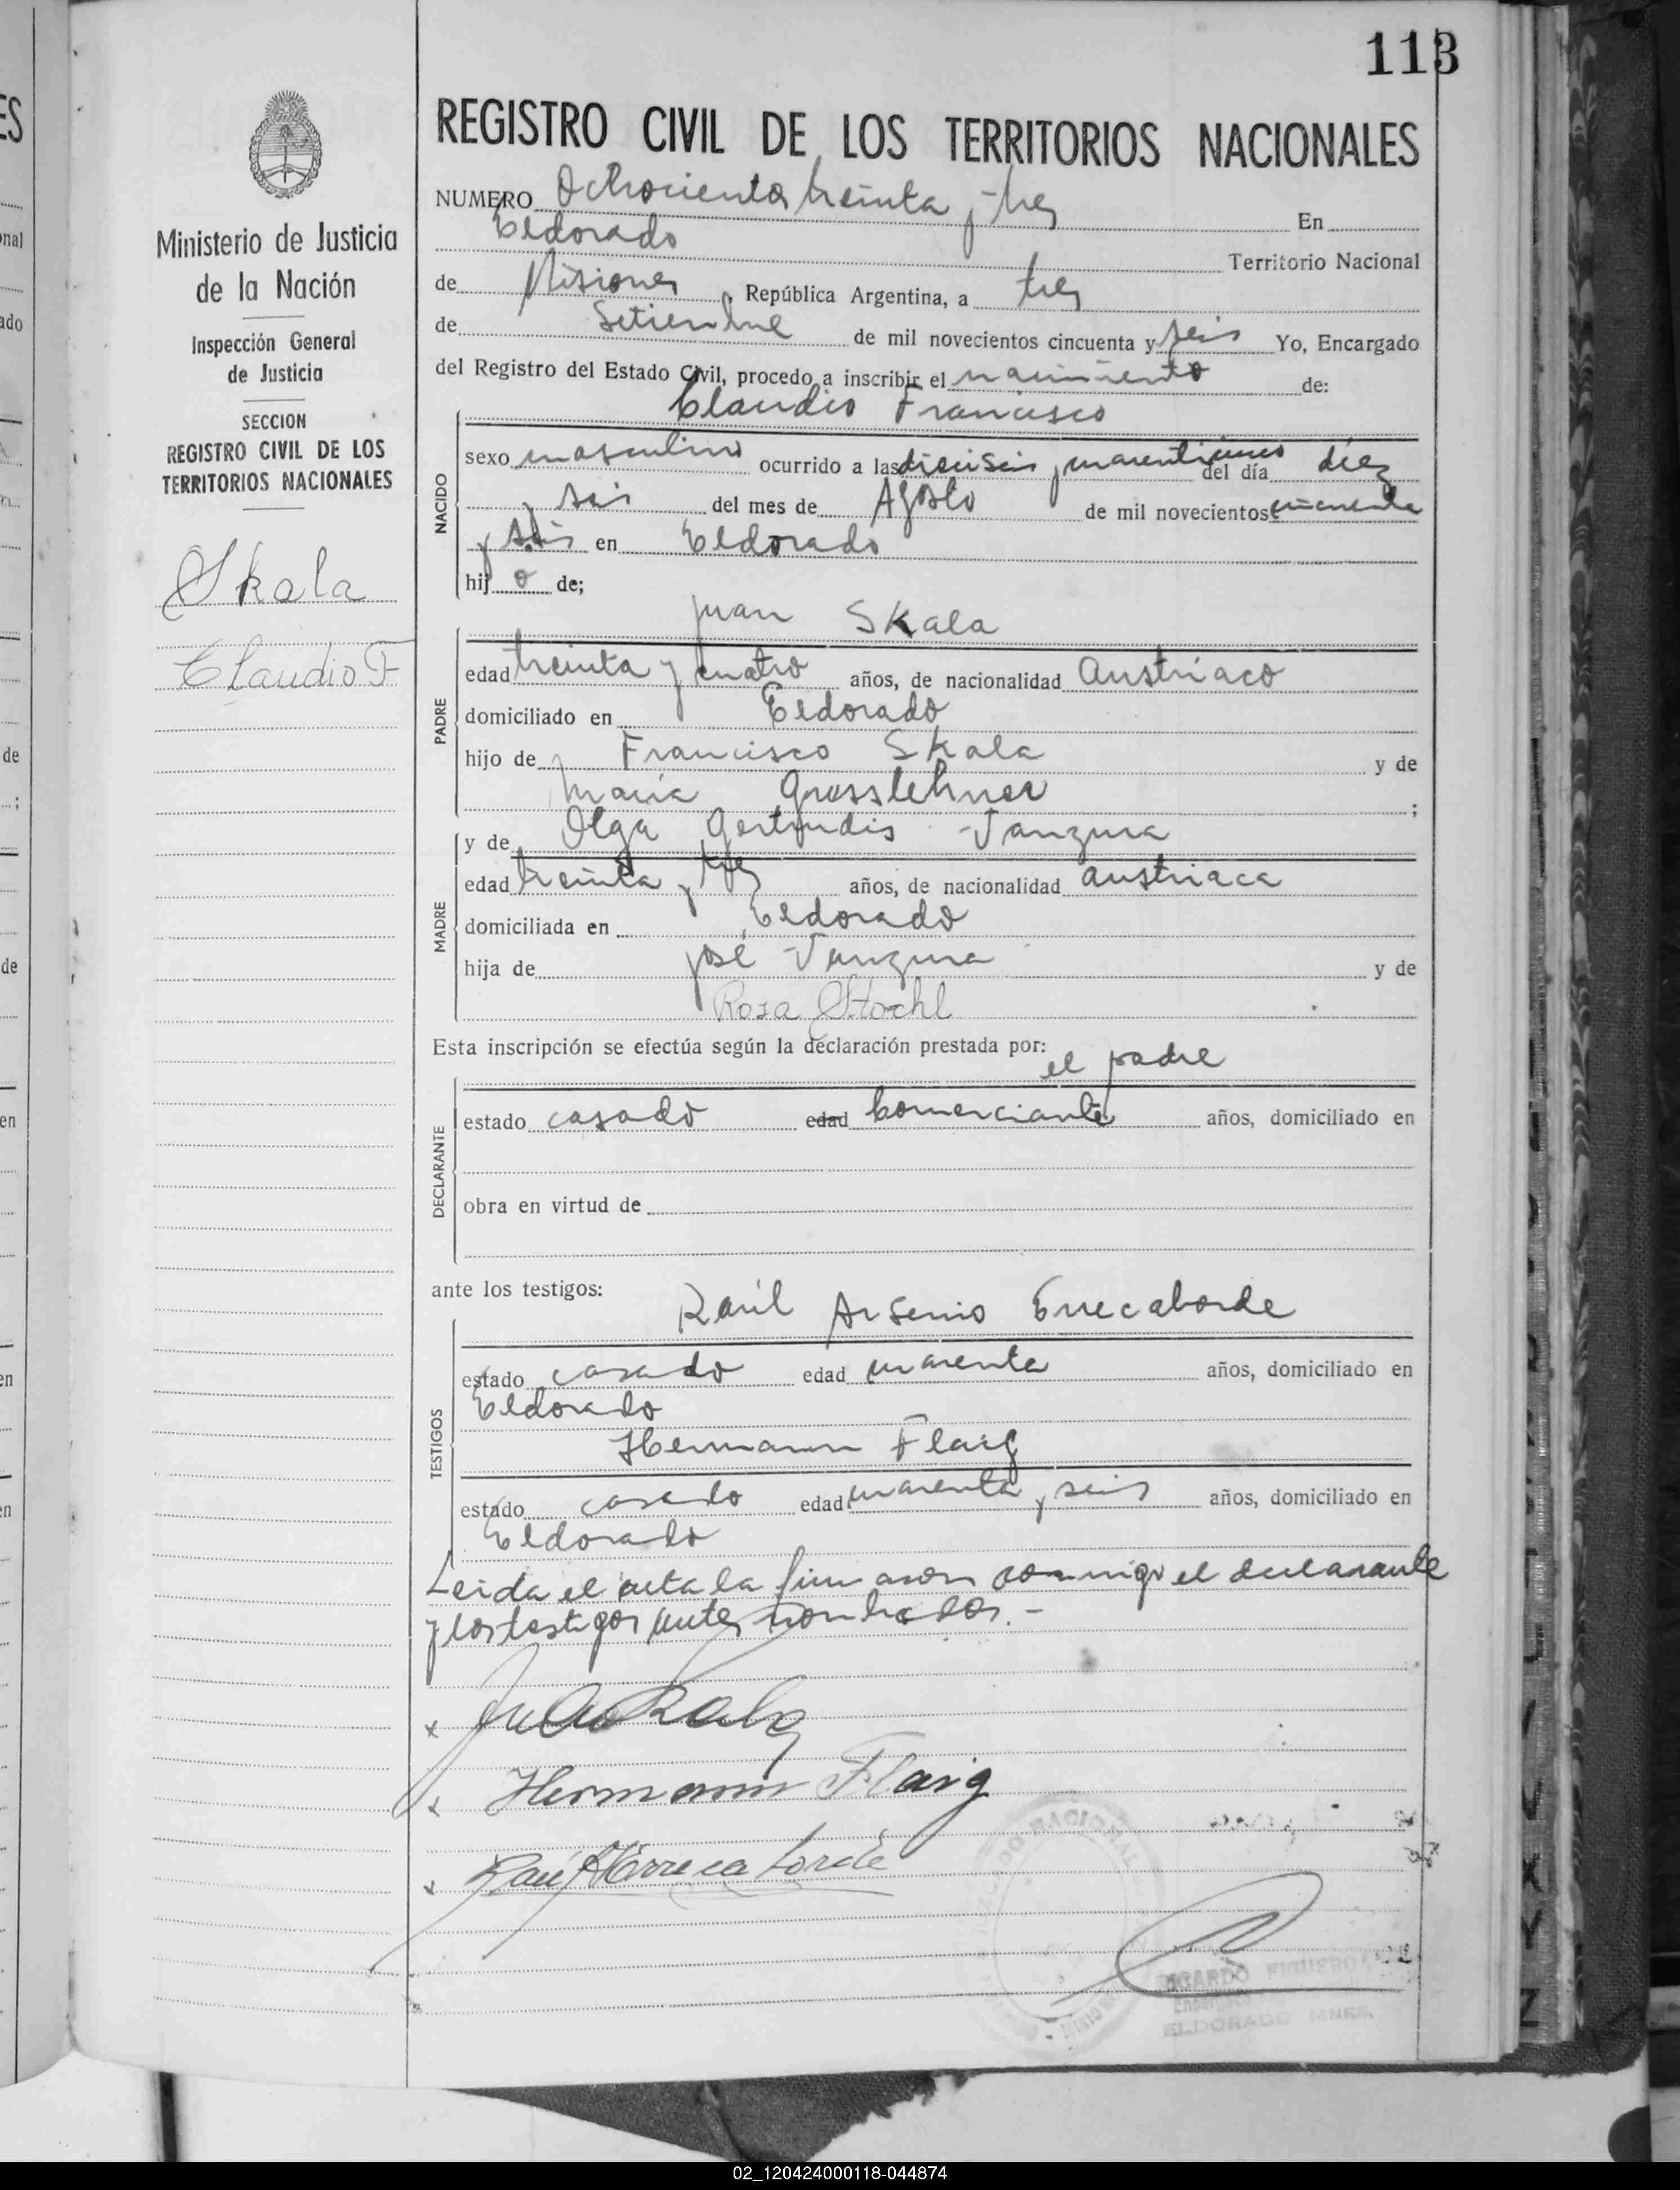 113
REGISTRO CIVIL DE LOS TERRITORIOS NACIONALES
Ministerio de Justicia
de la Nación
Inspección General
de Justicia
SECCION
REGISTRO CIVIL DE LOS
TERRITORIOS NACIONALES
Skala
Claudio F
NUMERO Ochocientos treinta y tres En
Eldorado Territorio Nacional
de Misiones, República Argentina, a tres
de Setiembre de mil novecientos cincuenta y seis Yo, Encargado
del Registro del Estado Civil, procedo a inscribir el nacimiento de:
Claudio Francisco
NACIDO
sexo masculino ocurrido a las dieciseis y cuarenticinco del día diez
y seis del mes de Agosto de mil novecientos cincuenta
y seis en Eldorado
hijo de;
Juan Skala
PADRE
edad treinta y cuatro años, de nacionalidad Austríaco
domiciliado en Eldorado
hijo de Francisco Skala y de
María Grosslehner ;
y de Olga Gertrudis Vanzura
MADRE
edad treinta y tres años, de nacionalidad austriaca
domiciliada en Eldorado
hija de José Vanzura y de
Rosa Stochl
Esta inscripción se efectúa según la declaración prestada por:
el padre
DECLARANTE
estado casado edad Comerciante años, domiciliado en
obra en virtud de
ante los testigos:
Raúl Arsenio Errecaborde
TESTIGOS
estado casado edad cuarenta años, domiciliado en
Eldorado
Hermann Flaig
estado casado edad cuarenta y seis años, domiciliado en
Eldorado
Leida el acta la firmaron conmigo el declarante
y los testigos antes nombrados.-
Hermann Flaig
Raúl A Errecaborde
NACIONAL
RICARDO FIGUERO
Encargado
ELDORADO MNES.
02_120424000118-044874